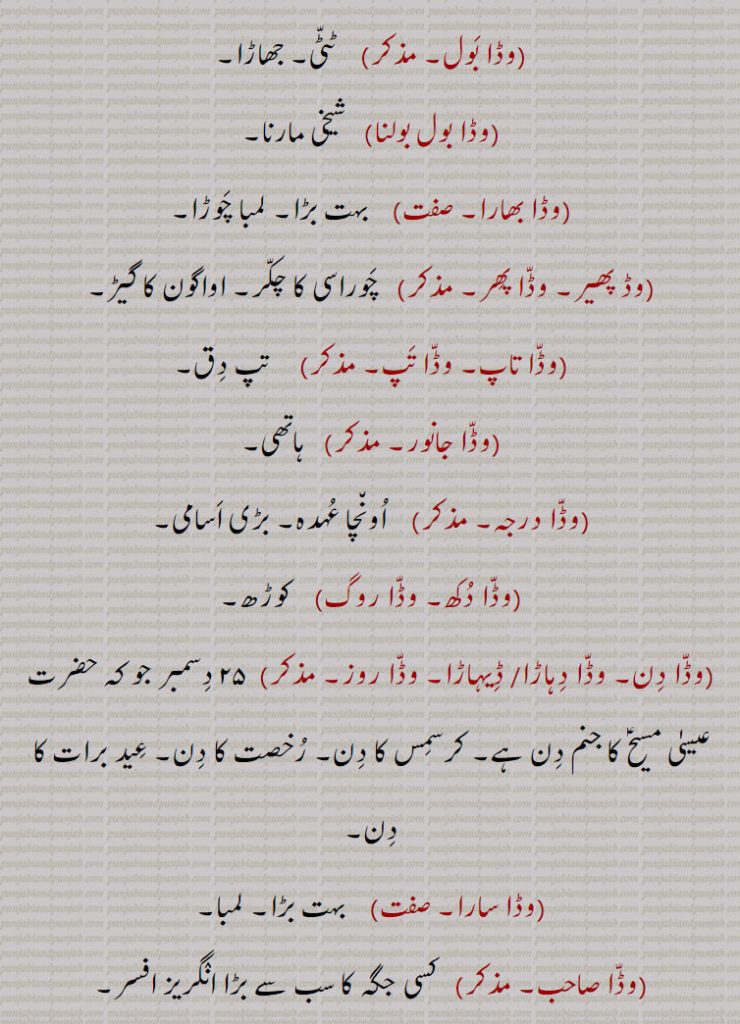 (وڈا بَول۔ مذکر) ٹٹّی۔ جھاڑا۔
(وڈا بول بولنا) شیخی مارنا۔
(وڈا بھارا۔ صفت) بہت بڑا۔ لمبا چَوڑا۔
(وڈ پھیر۔ وڈّا پھر۔ مذکر) چَوراسی کا چکّر۔ اواگون کا گیڑ۔
(وڈّا تاپ۔ وڈّا تَپ۔ مذکر) تپ دِق۔
(وڈّا جانور۔ مذکر) ہاتھی۔
(وڈّا درجہ۔ مذکر) اُونّچا عُہدہ۔ بڑی اَسامی۔
(وڈّا دُکھ۔ وڈّا روگ) کوڑھ۔
(وڈّا دِن۔ وڈّا دِہاڑا/ ڈِیہاڑا۔ وڈّا روز۔ مذکر) ۲۵ دِسمبر جو کہ حضرت
عیسیٰ مسیحؑ کا جنم دِن ہے۔ کرسمِس کا دِن۔ رُخصت کا دِن۔ عِید برات کا
دِن۔
(وڈا سارا۔ صفت) بہت بڑا۔ لمبا۔
(وڈّا صاحب۔ مذکر) کسی جگہ کا سب سے بڑا انْگریز افسر۔